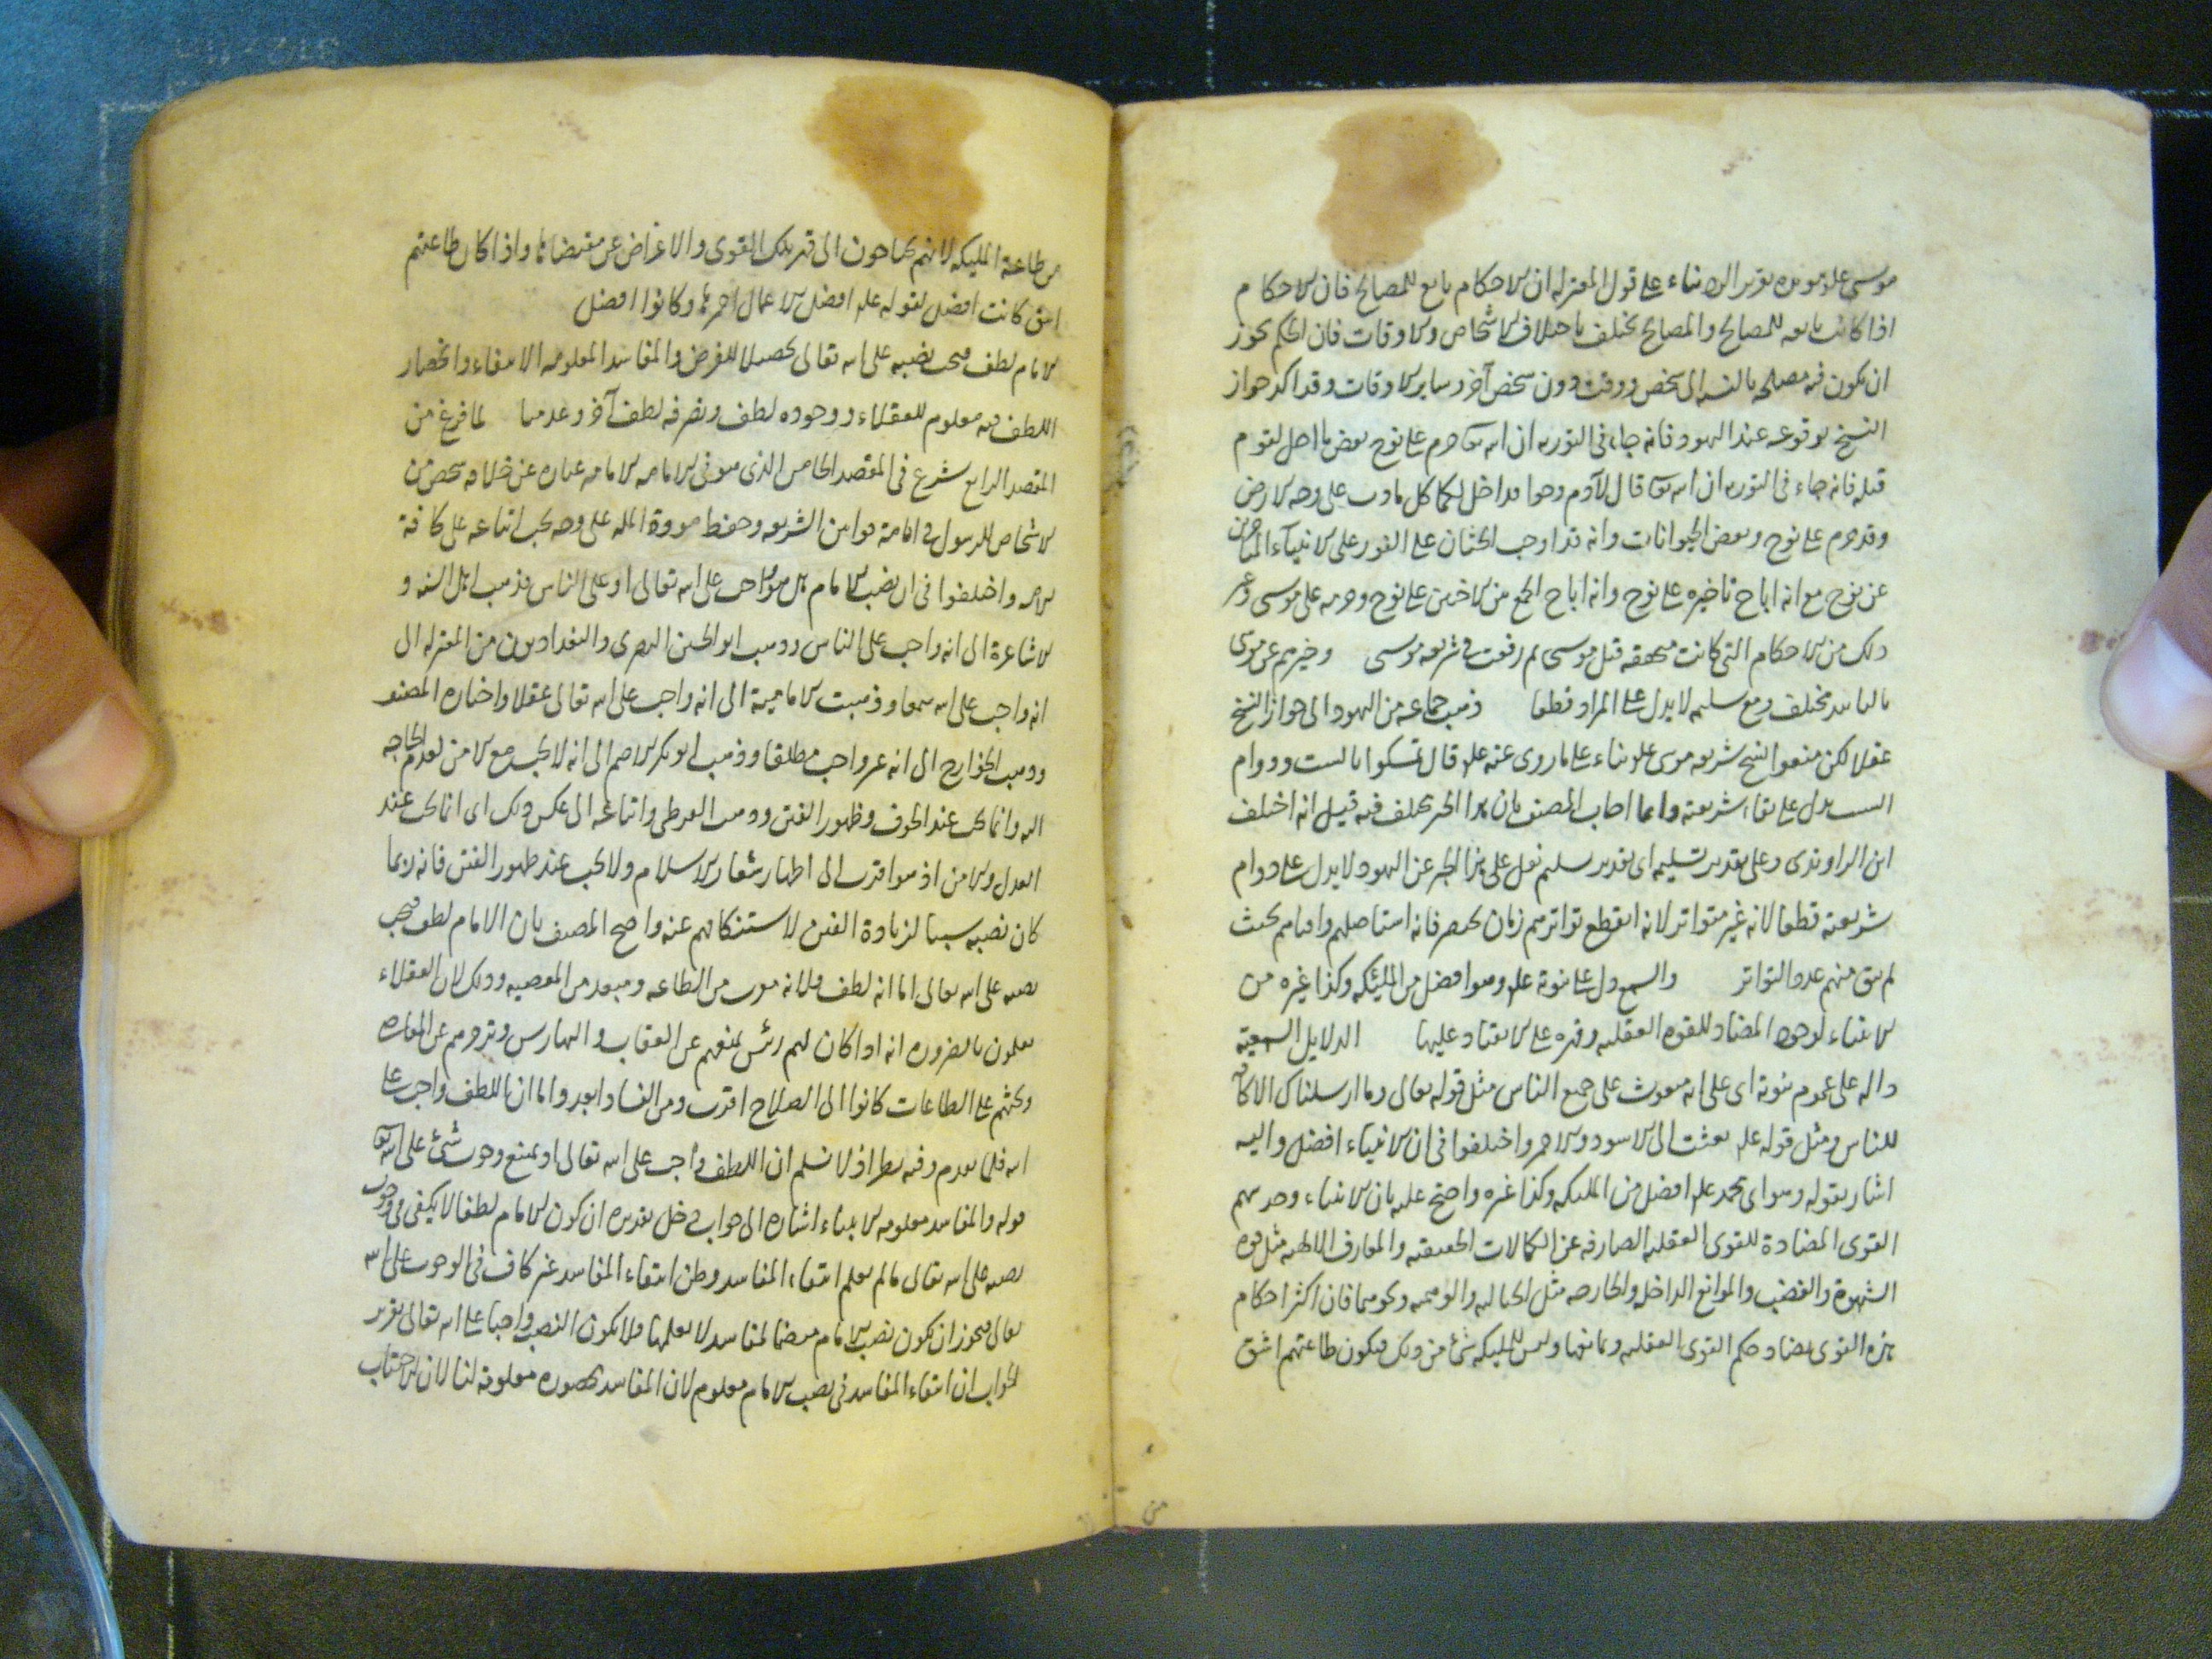 موسى علم مؤيده تقرير الرد بناء على قول المعتزلة ان الاحكام تابع للمصالح فان الاحكام
اذا كانت تابعه للمصالح والمصالح تختلف باختلاف الاشخاص والاوقات فان الحكم يجوز
ان يكون فيه مصلحه بالنسبه الى شخص ووقت دون شخص آخر وساير الاوقات وقد اكد جواز
النسخ بوقوعه عند اليهود فانه جاء في التوريه ان الله تعا حرم على نوح بعض ما احل لقوم
قبله فانه جاء في التوريه ان الله تعا قال لآدم وحوا قد احل لكما كل ما دب على وجه الارض
وقد حرم على نوح وبعض الحيوانات وانه قد اوجب الختان على الفور على الانبيآء المتاخرين
عن نوح مع انه اباح تاخيره على نوح وانه اباح الجمع بين الاختين على نوح وحرمه على موسى وغير
ذلك من الاحكام التي كانت متحققه قبل موسى ثم رفعت في شريعه موسى وخبرهم عن موسى
بالتابيد مختلف ومع تسليمه لا يدل على المراد قطعا ذهب جماعه من اليهود الى جواز النسخ
عقلا لكن منعوا نسخ شريعه موسى علم بناء على ما روى عنه علم قال تمسكوا بالسبت ودوام
السبت يدل على بقاء شريعته وانما اجاب المصنف بان هذا الخبر مختلف فيه قيل انه اختلف
ابن الراوندى وعلى تقدير تسليمه اى تقدير تسليم نقل على هذا الخبر عن اليهود لا يدل على دوام
شريعته قطعا لانه غير متواتر لانه انقطع تواترهم زمان بختنصر فانه استاصلهم وافناهم بحيث
لم يبق منهم عدد التواتر والسمع دل على نبوته علم وهو افضل من المليئكه وكذا غيره من
الانبياء لوجود المضاد للقوه العقليه وقهره على الانقياد عليها الدلايل السمعية
داله على عموم نبوته اى على انه مبعوث على جميع الناس مثل قوله تعالى وما ارسلناك الا كافة
للناس ومثل قوله علم بعثت الى الاسود والاحمر واختلفوا في ان الانبياء افضل واليه
اشار بقوله وهو اى محمد علم افضل من المليكه وكذا غيره واحتج عليه بان الانبياء وجد منهم
القوى المضادة للقوى العقليه الصارفه عن الكمالات الحقيقيه والمعارف الالهيه مثل قوه
الشهوة والغضب والموانع الداخله والخارجه مثل الخياليه والوهميه ونحوهما فان اكثر احكام
هذه القوى يضاد حكم القوى العقليه ويمانعها وليس للمليكه شئ من ذلك فيكون طاعتهم اشق
من طاعة المليكه لانهم يحتاجون الى قهر تلك القوى والاعراض عن مقتضاتها واذا كان طاعتهم
اشق كانت افضل لقوله علم افضل الاعمال احمزها وكانوا افضل
الامام لطف فيجب نصبه على الله تعالى تحصيلا للغرض والمفاسد المعلومه الانتفاء وانحصار
اللطف فيه معلوم للعقلاء ووجوده لطف وتصرفه لطف آخر وعدمه منا لما فرغ من
المقصد الرابع شرع في المقصد الخامس الذى هو في الامامه الامامه عباره عن خلافه شخص من
الاشخاص للرسول في اقامة قوانين الشريعه وحفظ حوزة المله على وجه يجب اتباعه على كافة
الامه واختلفوا في ان نصب الامام هل هو واجب على الله تعالى او على الناس فذهب اهل السنه و
الاشاعرة الى انه واجب على الناس وذهب ابو الحسين البصرى والبغداديون من المعتزله الى
انه واجب على الله سمعا وذهبت الاماميه الى انه واجب على الله تعالى عقلا واختاره المصنف
وذهب الخوارج الى انه غير واجب مطلقا وذهب ابو بكر الاصم الى انه لا يجب مع الامن لعدم الحاجه
اليه وانما يجب عند الخوف وظهور الفتن وذهب الفوطى واتباعه الى عكس ذلك اى انما يجب عند
العدل والامن اذ هو اقرب الى اظهار شعار الاسلام ولا يجب عند ظهور الفتن فانه ربما
كان نصبه سببا لزيادة الفتن لاستنكافهم عنه واحتج المصنف بان الامام لطف فيجب
نصبه على الله تعالى اما انه لطف فلانه مقرب من الطاعه ومبعد من المعصيه وذلك لان العقلاء
يعلمون بالضروره انه اذا كان لهم رئيس يمنعهم عن و التهارش ويزجرهم عن المعاصى
ويحثهم على الطاعات كانوا الى الصلاح اقرب ومن الفساد ابعد واما ان اللطف واجب على
الله فلما تقدم وفيه نظر اذ لا نسلم ان اللطف واجب على الله تعالى او يمنع وجوب شئ على الله تعا
قوله والمفاسد معلومه الانتفاء اشاره الى جواب دخل تقديره ان كون الامام لطفا لا يكفى في وجوب
نصبه على الله تعالى ما لم يعلم انتفاء المفاسد وظن انتفاء المفاسد غير كاف في الوجوب على الله
تعالى فيجوز ان يكون نصب الامام متضمنا لمفاسد لا نعلمها فلا يكون النصب واجبا على الله تعالى تقرير
الجواب ان انتفاء المفاسد في نصب الامام معلوم لان المفاسد محصوره معلومه لنا لان الاجتناب